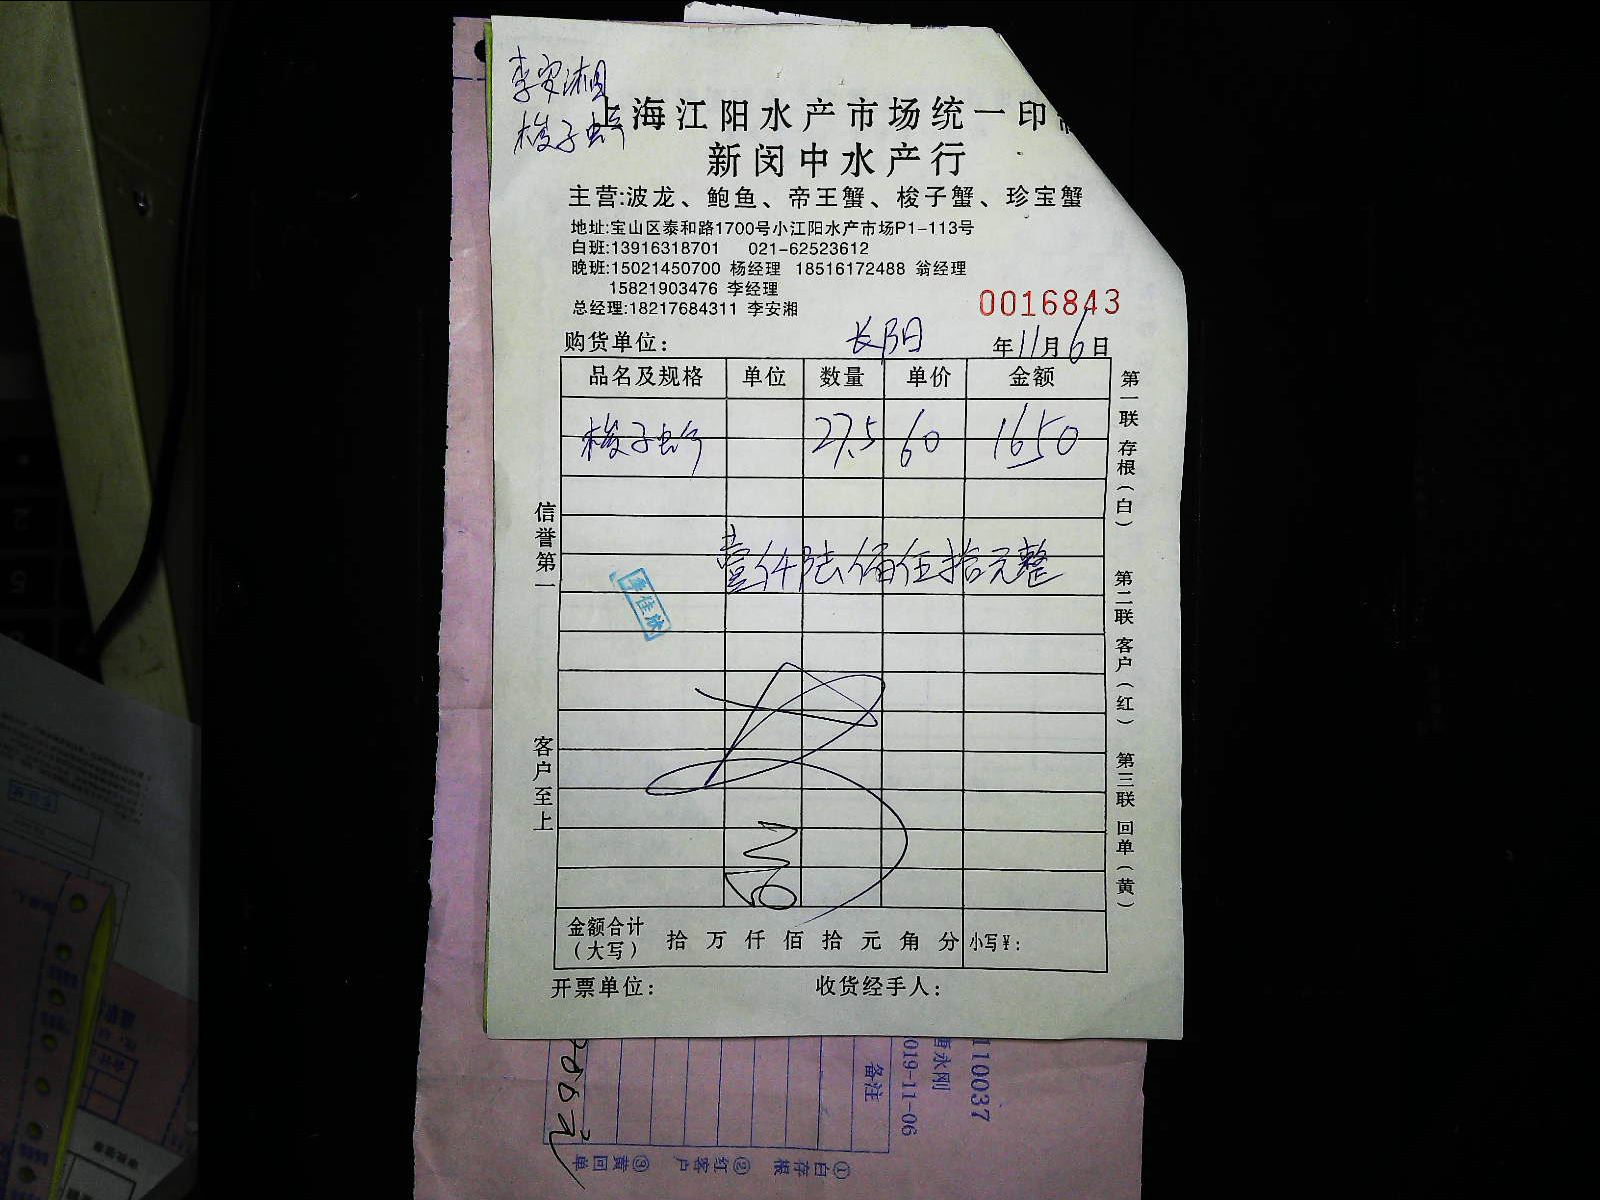 李安湘
梭子蟹
上海江阳水产市场统一印
新闵中水产行
主营:波龙、鲍鱼、帝王蟹、梭子蟹、珍宝蟹
地址:宝山区泰和路1700号小江阳水产市场P1-113号
白班:13916318701 021-62523612
晚班:15021450700 杨经理 18516172488 翁经理
15821903476 李经理
总经理:18217684311 李安湘
0016843
购货单位: 长阳 年11月6日
品名及规格 单位 数量 单价 金额
梭子蟹 27.5 60 1650
壹仟陆佰伍拾元整
李佳
信誉第一
客户至上
第一联 存根(白)
第二联 客户(红)
第三联 回单(黄)
金额合计(大写) 拾 万 仟 佰 拾 元 角 分 小写¥:
开票单位: 收货经手人:
110037
唐永刚
019-11-06
备注
①白存根 ②红客户 ③黄回单